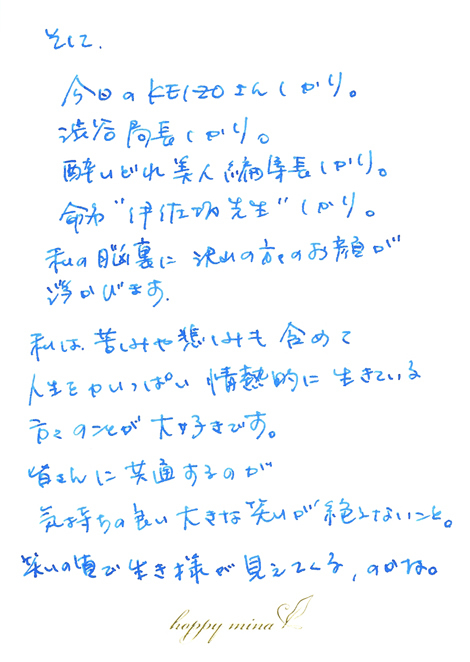 そして、
今日のKEIZOさんしかり。
渋谷局長しかり。
酔いどれ美人編集長しかり。
命名“伊佐坂先生”しかり。
私の脳裏に沢山の方々のお顔が
浮かびます.
私は苦しみや悲しみも含めて
人生をかいっぱい情熱的に生きている
方々のことが大好きです。
皆さんに共通するのが
気持ちの良い大きな笑いが絶えないこと。
笑いの質で生き様が見えてくる,のかな。
happy mina